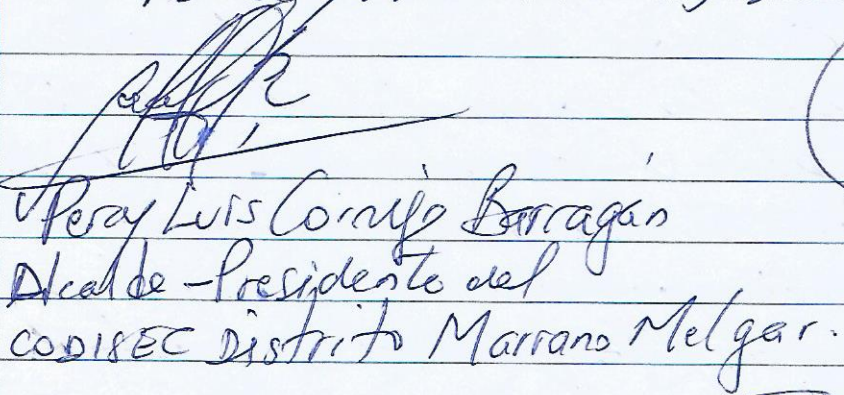 Percy Luis Cornejo Barragán
Alcalde - Presidente del
CODISEC Distrito Mariano Melgar.